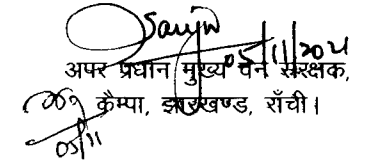 Sanjiv
05/11/2021
अपर प्रधान मुख्य वन संरक्षक,
कैम्पा, झारखण्ड, राँची।
05/11